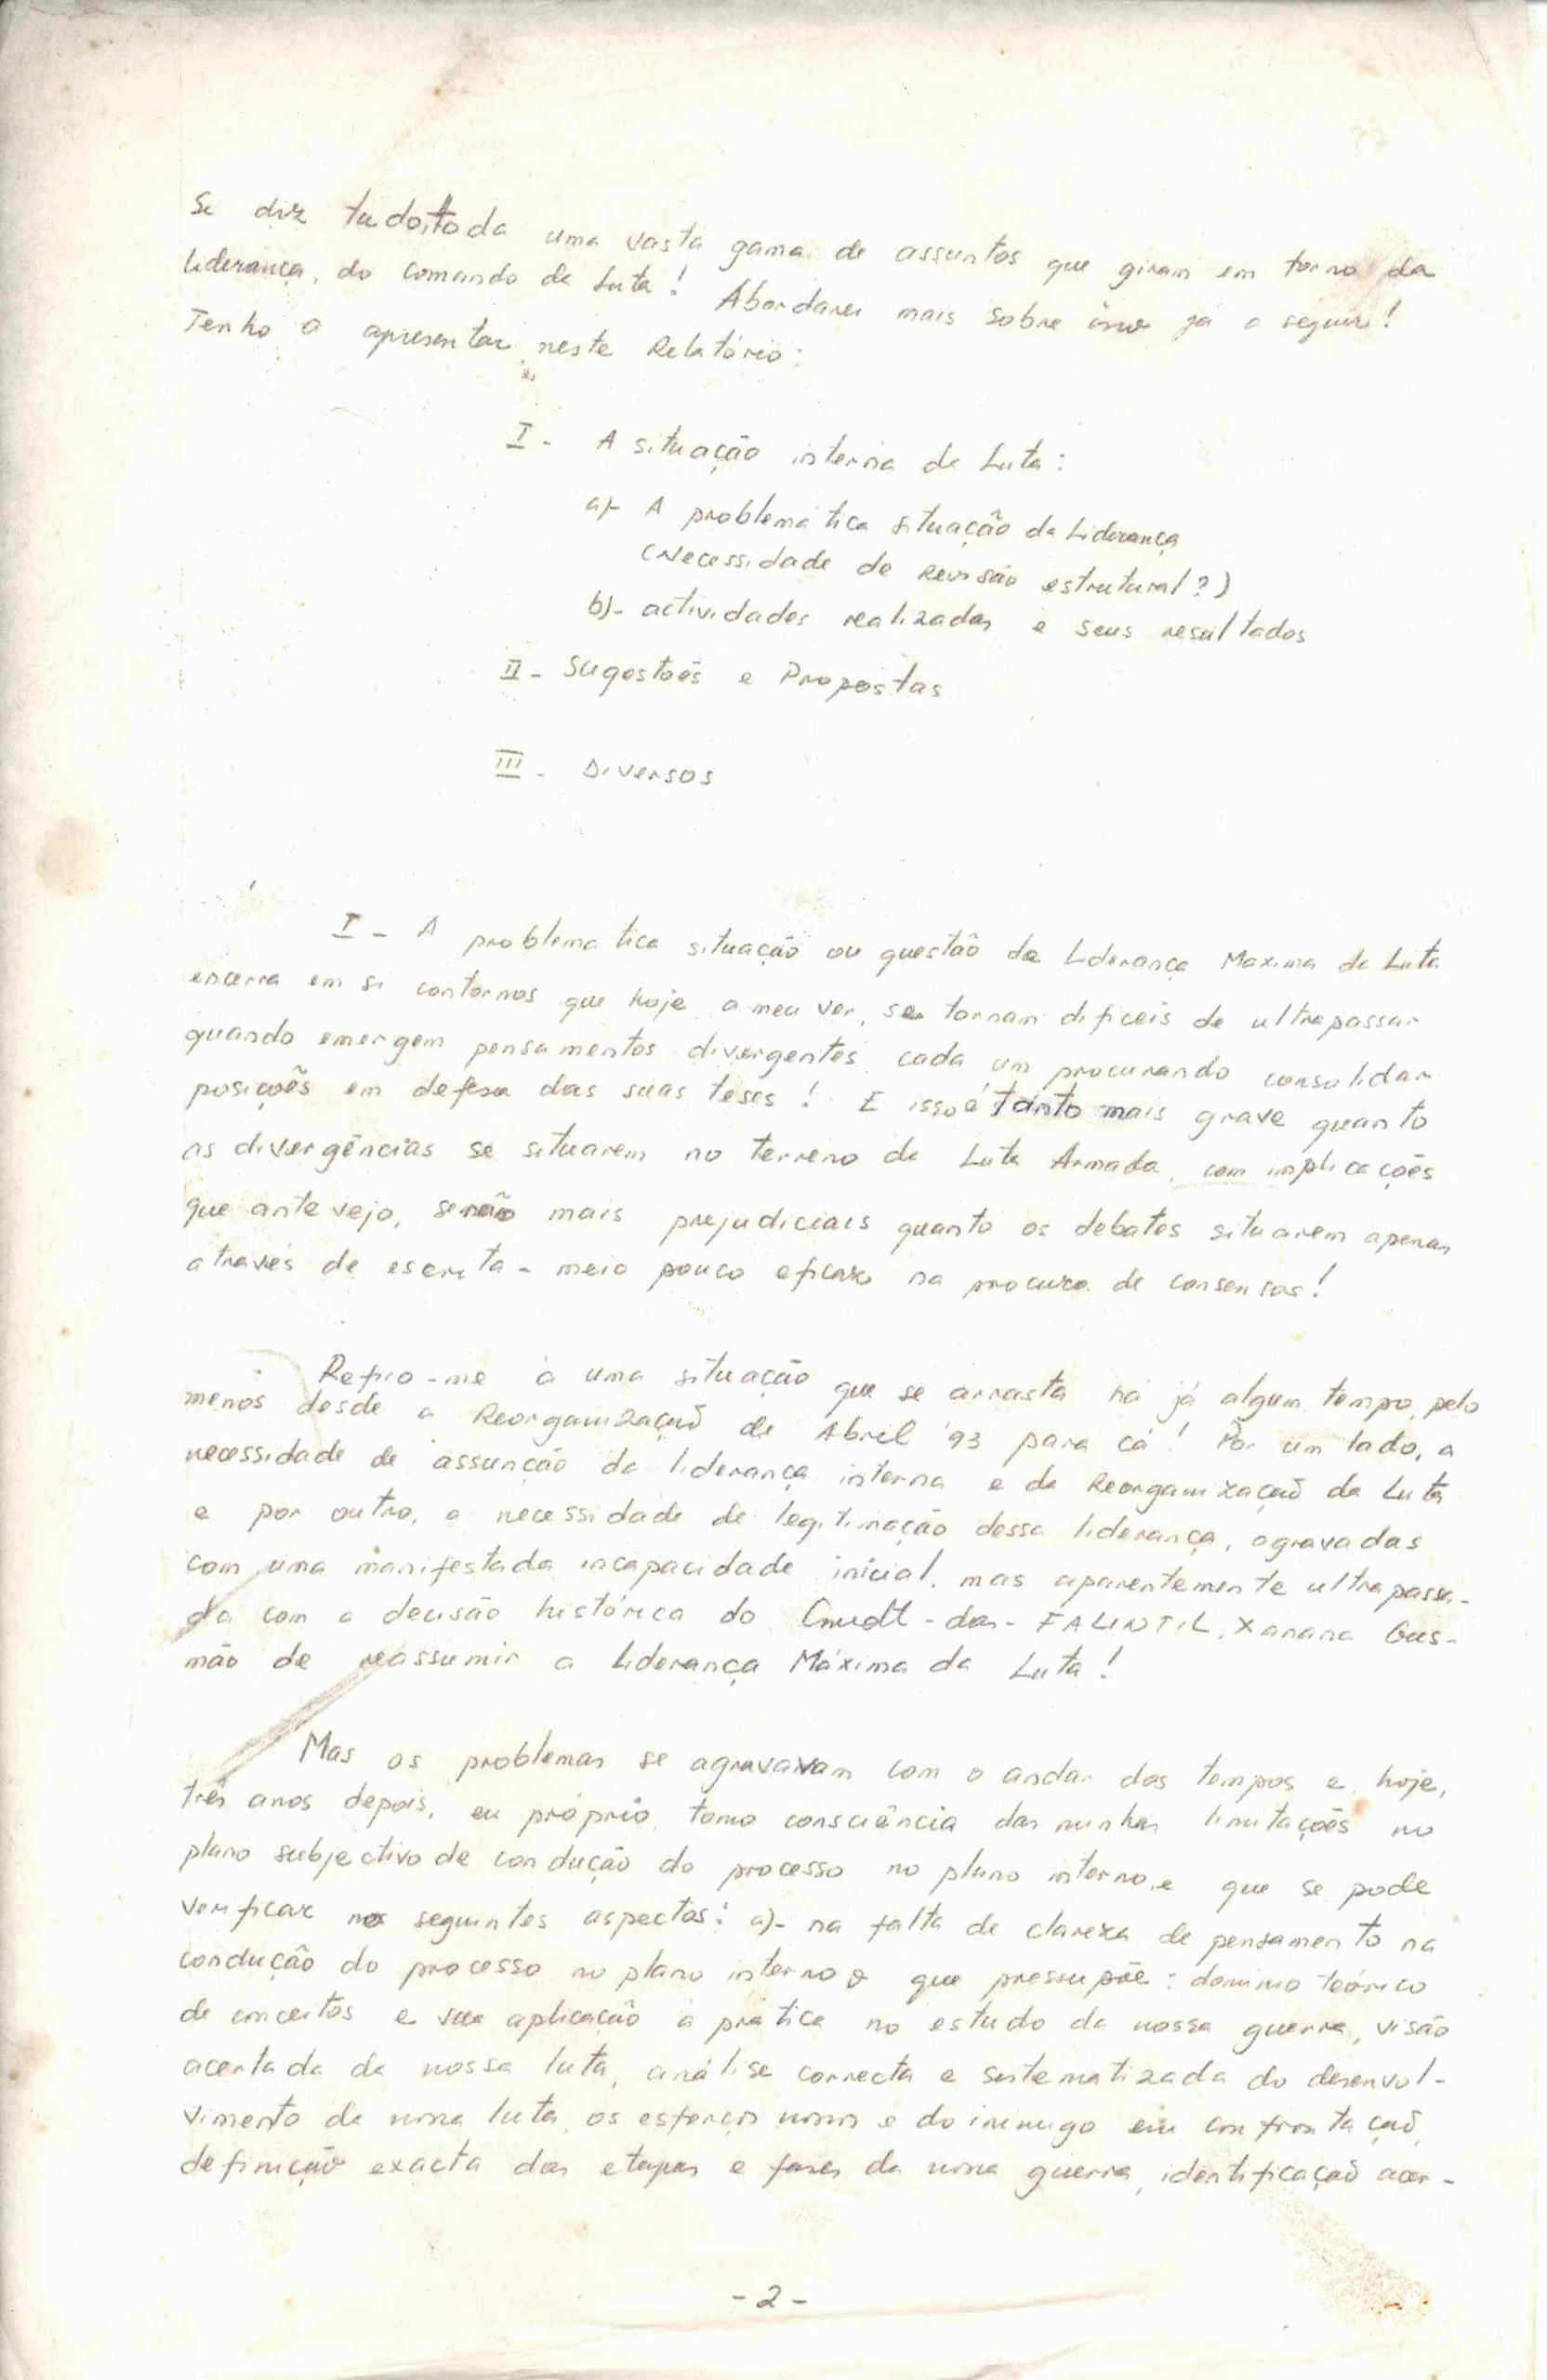 Se diz tudo, toda uma vasta gama de assuntos que giram em torno da
Liderança, do comando da Luta! Abordarei mais sobre isso já a seguir!
Tenho a apresentar neste Relatório:
I - A situação interna da Luta:
a)- A problemática situação da Liderança
(Necessidade de Revisão estrutural?)
b)- actividades realizadas e seus resultados
II - Sugestoẽs e Propostas
III - Diversos
I - A problemática situação ou questaõ da Liderança Maxima da Luta
encerra em si contornos que hoje, a meu ver, se tornam dificeis de ultrapassar
quando emergem pensamentos divergentes, cada um procurando consolidar
posiçoẽs em defesa das suas teses! E isso é tanto mais grave quanto
as divergências se situarem no terreno da Luta Armada, com implicaçoẽs
que antevejo, senão mais prejudiciais quanto os debates situarem apenas
através de escrita - meio pouco eficaz na procura de consensos!
Refiro-me à uma situação que se arrasta há já algum tempo, pelo
menos desde a Reorganizaçaõ de Abril '93 para cá! Por um lado, a
necessidade de assunção da liderança interna e da Reorganizaçaõ da Luta
e por outro, a necessidade de legitimação dessa liderança, agravadas
com uma manifestada incapacidade inicial, mas aparentemente ultrapassa-
da com a decisão histórica do Cmdt-das-FALINTIL, Xanana Gus-
mão de reassumir a liderança Máxima da Luta!
Mas os problemas se agravavam com o andar dos tempos e, hoje,
três anos depois, eu próprio, tomo consciência das minhas limitaçoẽs no
plano subjectivo de condução do processo no plano interno, e que se pode
verificar nos seguintes aspectos: a)- na falta de clareza de pensamento na
condução do processo no plano interno o que pressupõe: dominio teórico
de conceitos e sua aplicação à prática no estudo da nossa guerra, visão
acertada da nossa luta, análise correcta e sistematizada do desenvol-
vimento da nossa luta, os esforços nossos e do inimigo em confrontaçaõ,
definição exacta das etapas e fases da nossa guerra, identificaçaõ acer-
- 2 -